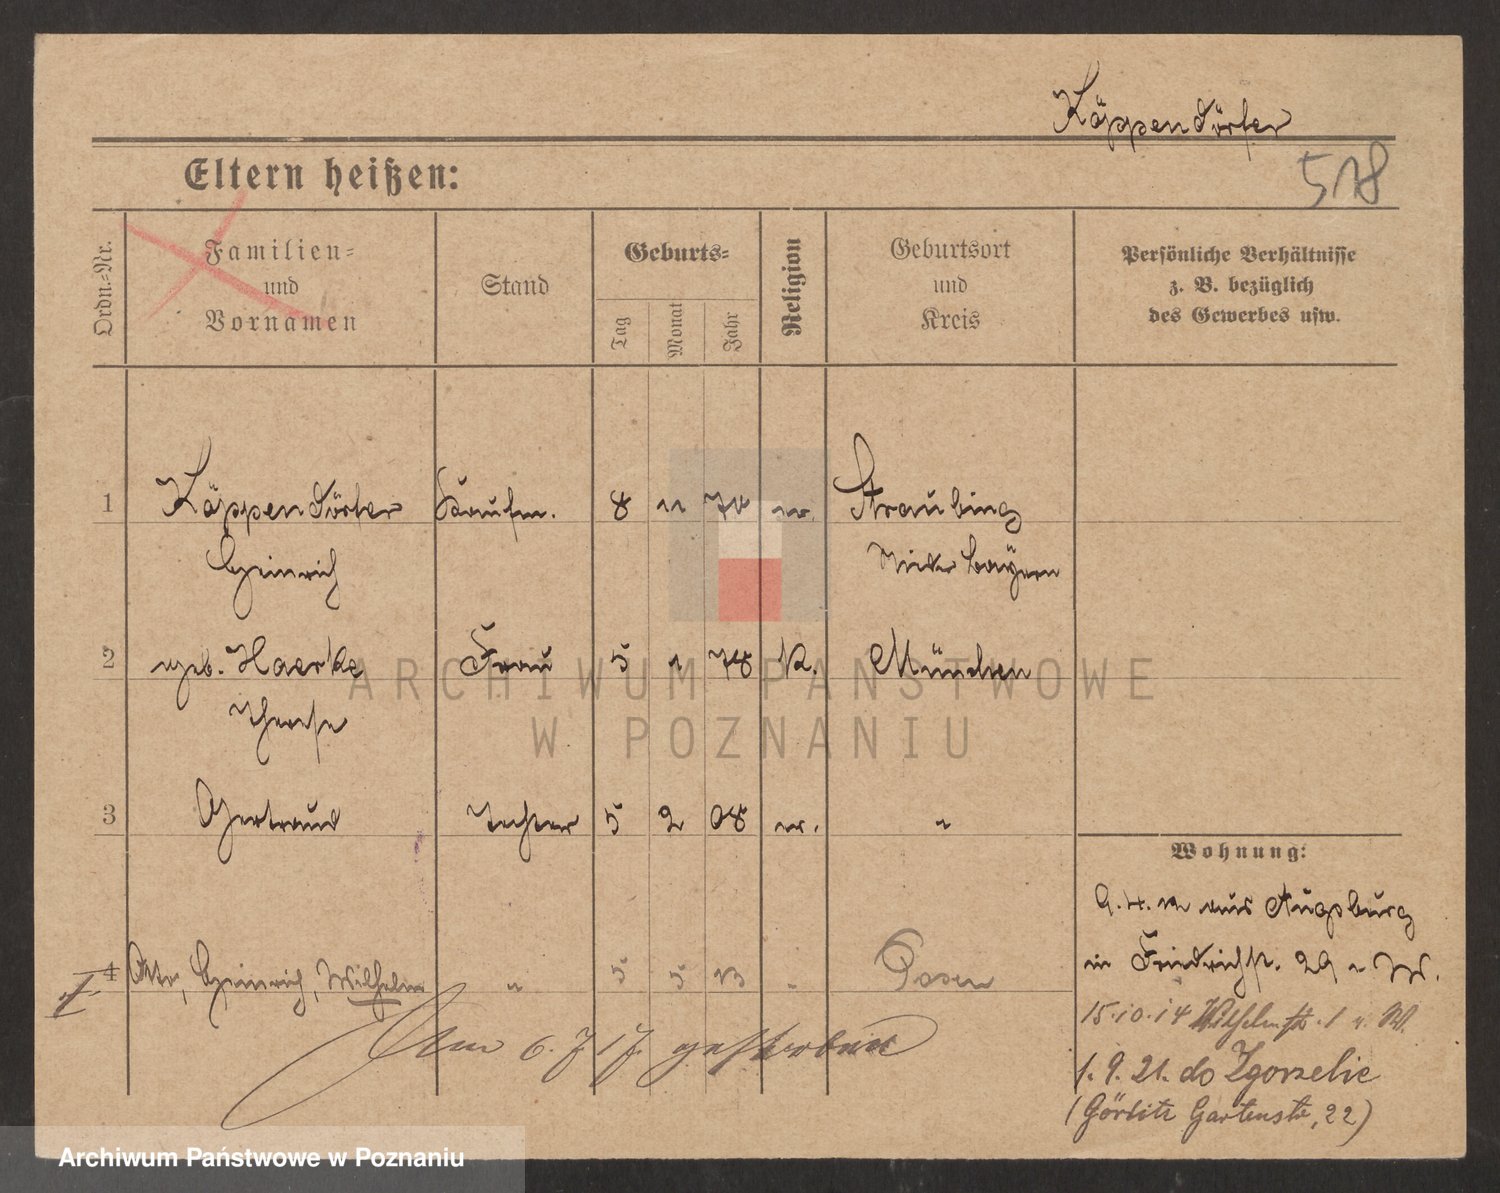 Käppendörfer
Eltern heißen:
518
Ordn.-Nr.
Familien-
und
Vornamen
Stand
Geburts-
Tag
Monat
Jahr
Religion
Geburtsort
und
Kreis
Persönliche Verhältnisse
z. B. bezüglich
des Gewerbes usw.
1 Käppendörfer Kaufm. 8 11 70 ev. Straubing
Heinrich Niederbayern
2 geb. Haerke Frau 5 1 78 K. München
Therese
3 Gertraud Tochter 5 2 08 ev. "
Wohnung:
9. 4. 12 aus Augsburg
4 Otto, Heinrich, Wilhelm " 5 5 13 " Posen
in Friedrichstr. 29 v. W.
15.10.14 Wilhelmstr. 1 v. W.
am 6. 7 17. gestorben
1. 9. 21. do Zgorzelic
(Görlitz Gartenstr, 22)
ARCHIWUM PAŃSTWOWE
W POZNANIU
Archiwum Państwowe w Poznaniu